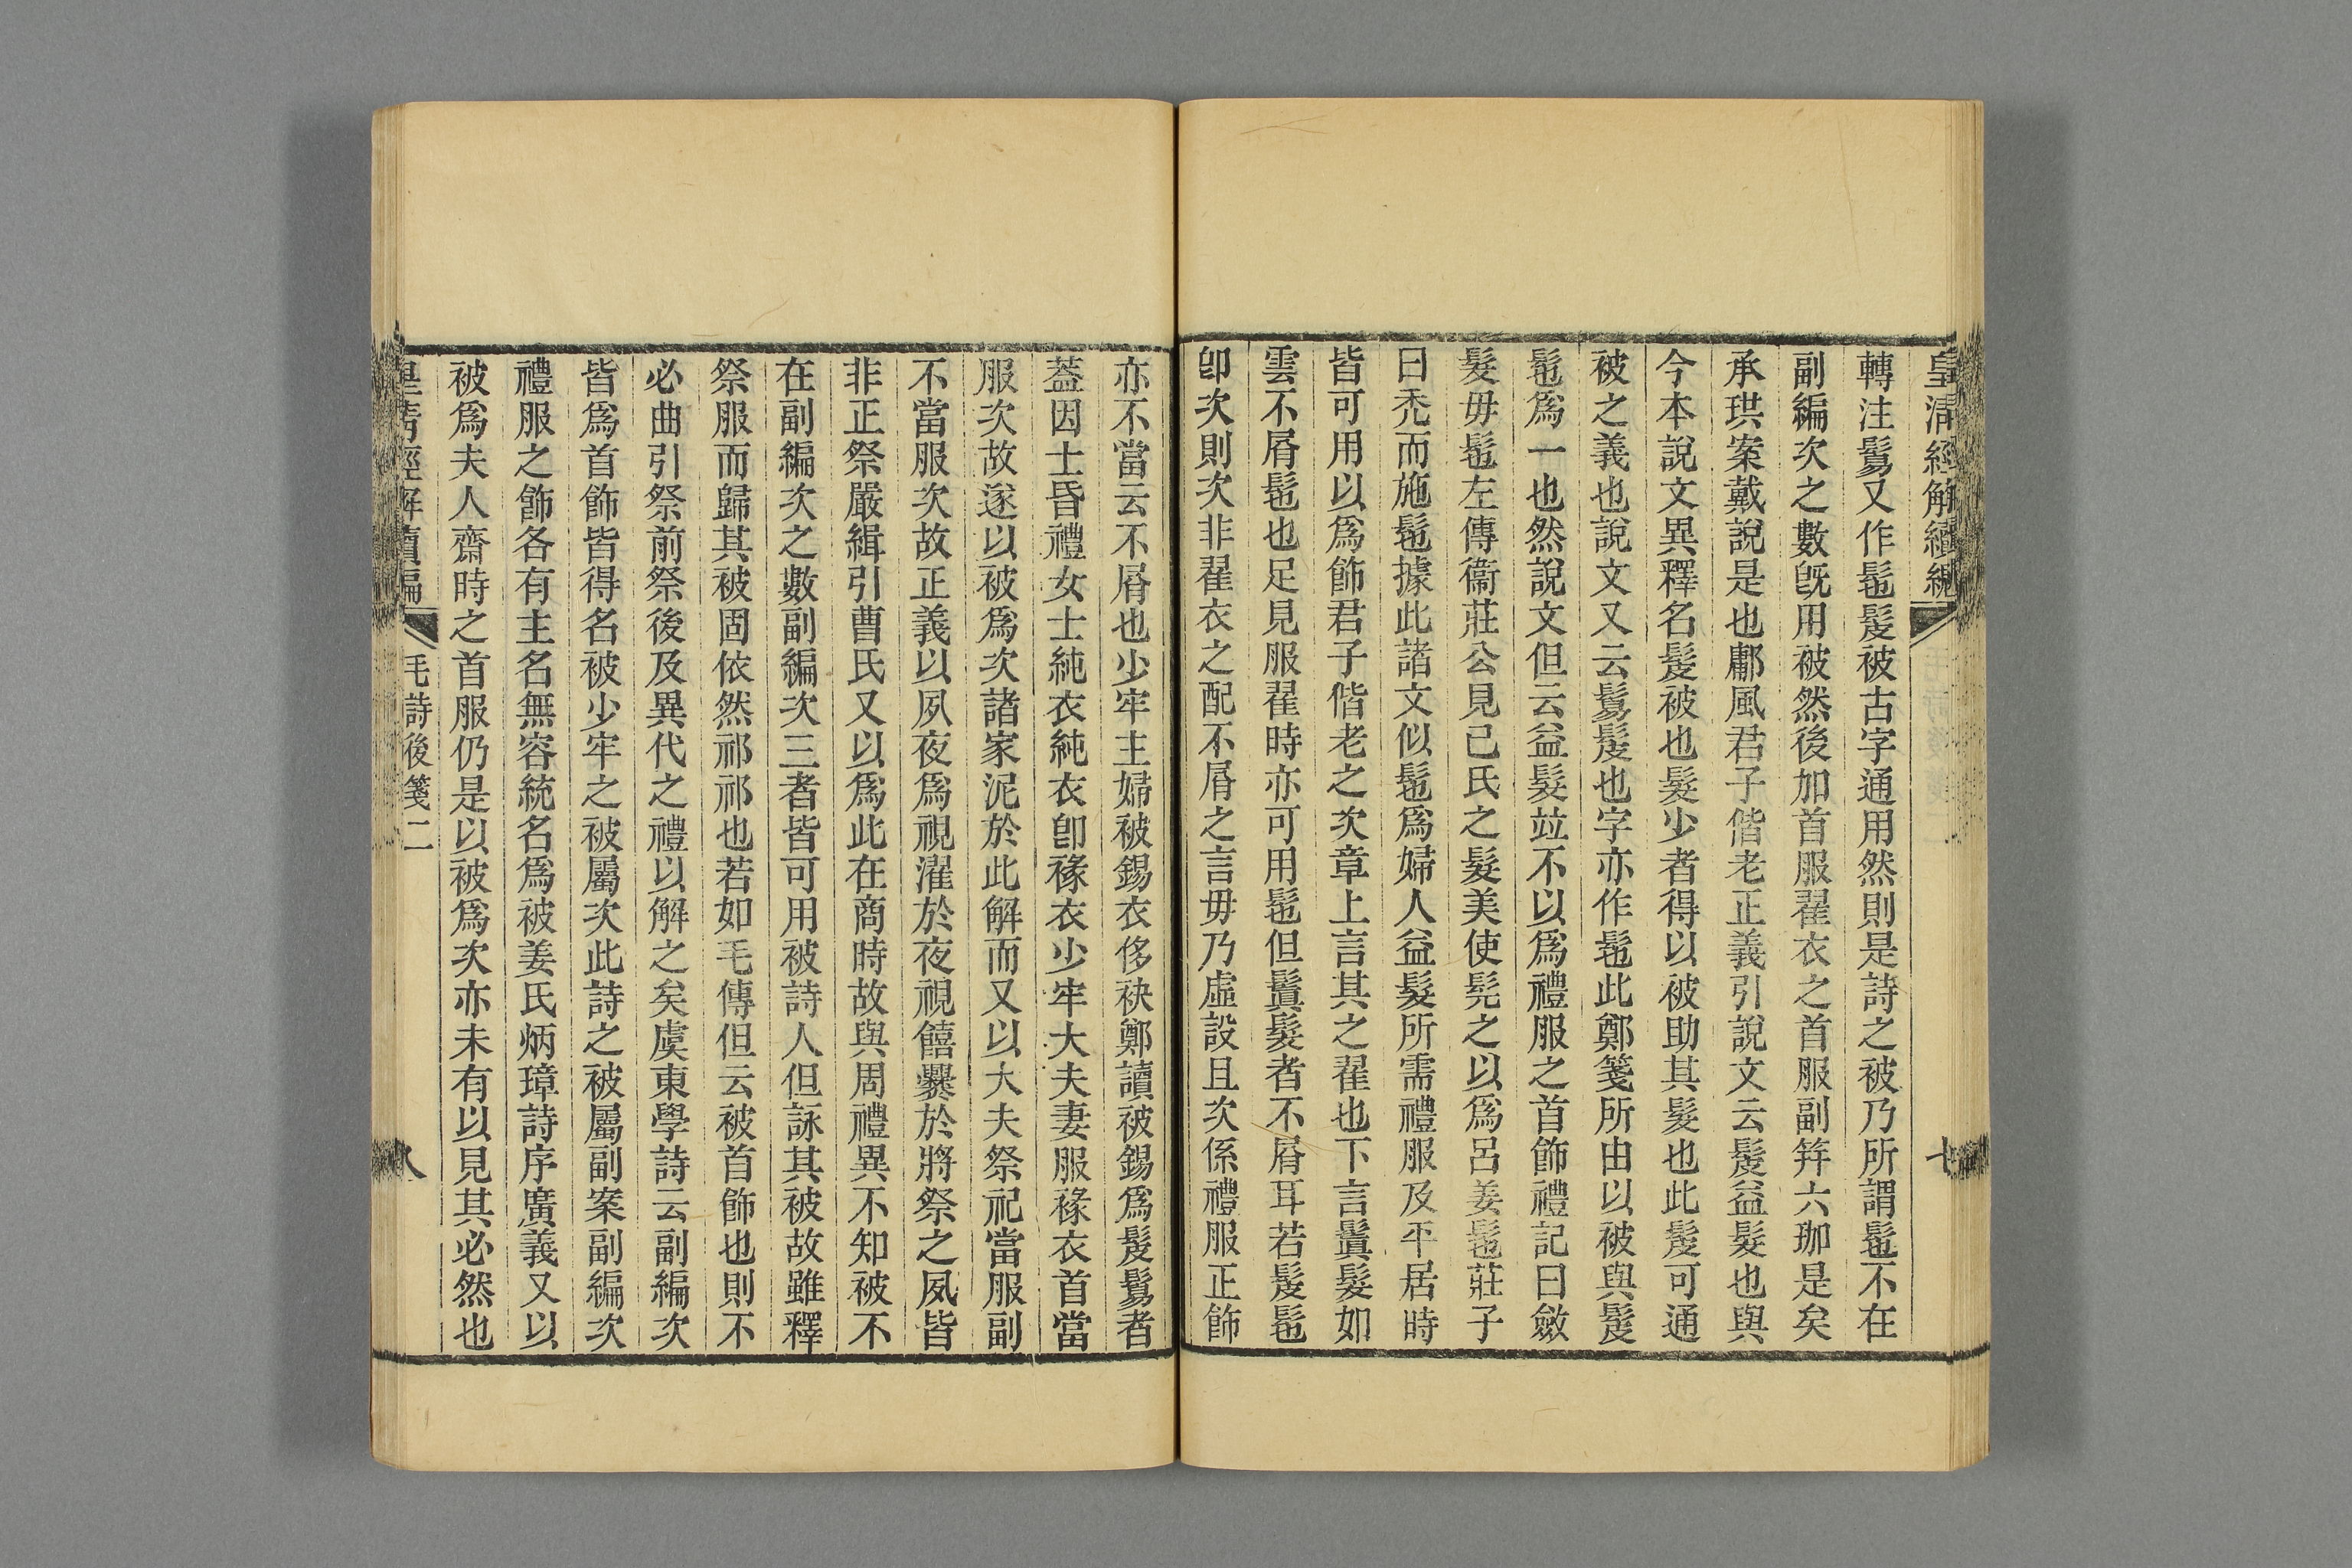 皇清經解續編 七
轉注鬄又作髢髲被古字通用然則是詩之被乃所謂髢不在
副編次之數旣用被然後加首服翟衣之首服副笄六珈是矣
承珙案戴說是也鄘風君子偕老正義引說文云髲益髮也與
今本說文異釋名髲被也髮少者得以被助其髮也此髲可通
被之義也說文又云鬄髲也字亦作髢此鄭箋所由以被與髲
髢爲一也然說文但云益髮竝不以爲禮服之首飾禮記曰斂
髮毋髢左傳衞莊公見己氏之髮美使髡之以爲呂姜髢莊子
曰禿而施髢據此諸文似髢爲婦人益髮所需禮服及平居時
皆可用以爲飾君子偕老之次章上言其之翟也下言鬒髮如
雲不屑髢也足見服翟時亦可用髢但鬒髮者不屑耳若髲髢
卽次則次非翟衣之配不屑之言毋乃虛設且次係禮服正飾
亦不當云不屑也少牢主婦被錫衣侈袂鄭讀被錫爲髲鬄者
蓋因士昏禮女士純衣純衣卽褖衣少牢大夫妻服褖衣首當
服次故遂以被爲次諸家泥於此解而又以大夫祭祀當服副
不當服次故正義以夙夜爲視濯於夜視饎爨於將祭之夙皆
非正祭嚴緝引曹氏又以爲此在商時故與周禮異不知被不
在副編次之數副編次三者皆可用被詩人但詠其被故雖釋
祭服而歸其被固依然祁祁也若如毛傳但云被首飾也則不
必曲引祭前祭後及異代之禮以解之矣虞東學詩云副編次
皆爲首飾皆得名被少牢之被屬次此詩之被屬副案副編次
禮服之飾各有主名無容統名爲被姜氏炳璋詩序廣義又以
被爲夫人齋時之首服仍是以被爲次亦未有以見其必然也
皇清經解續編 毛詩後箋二 八